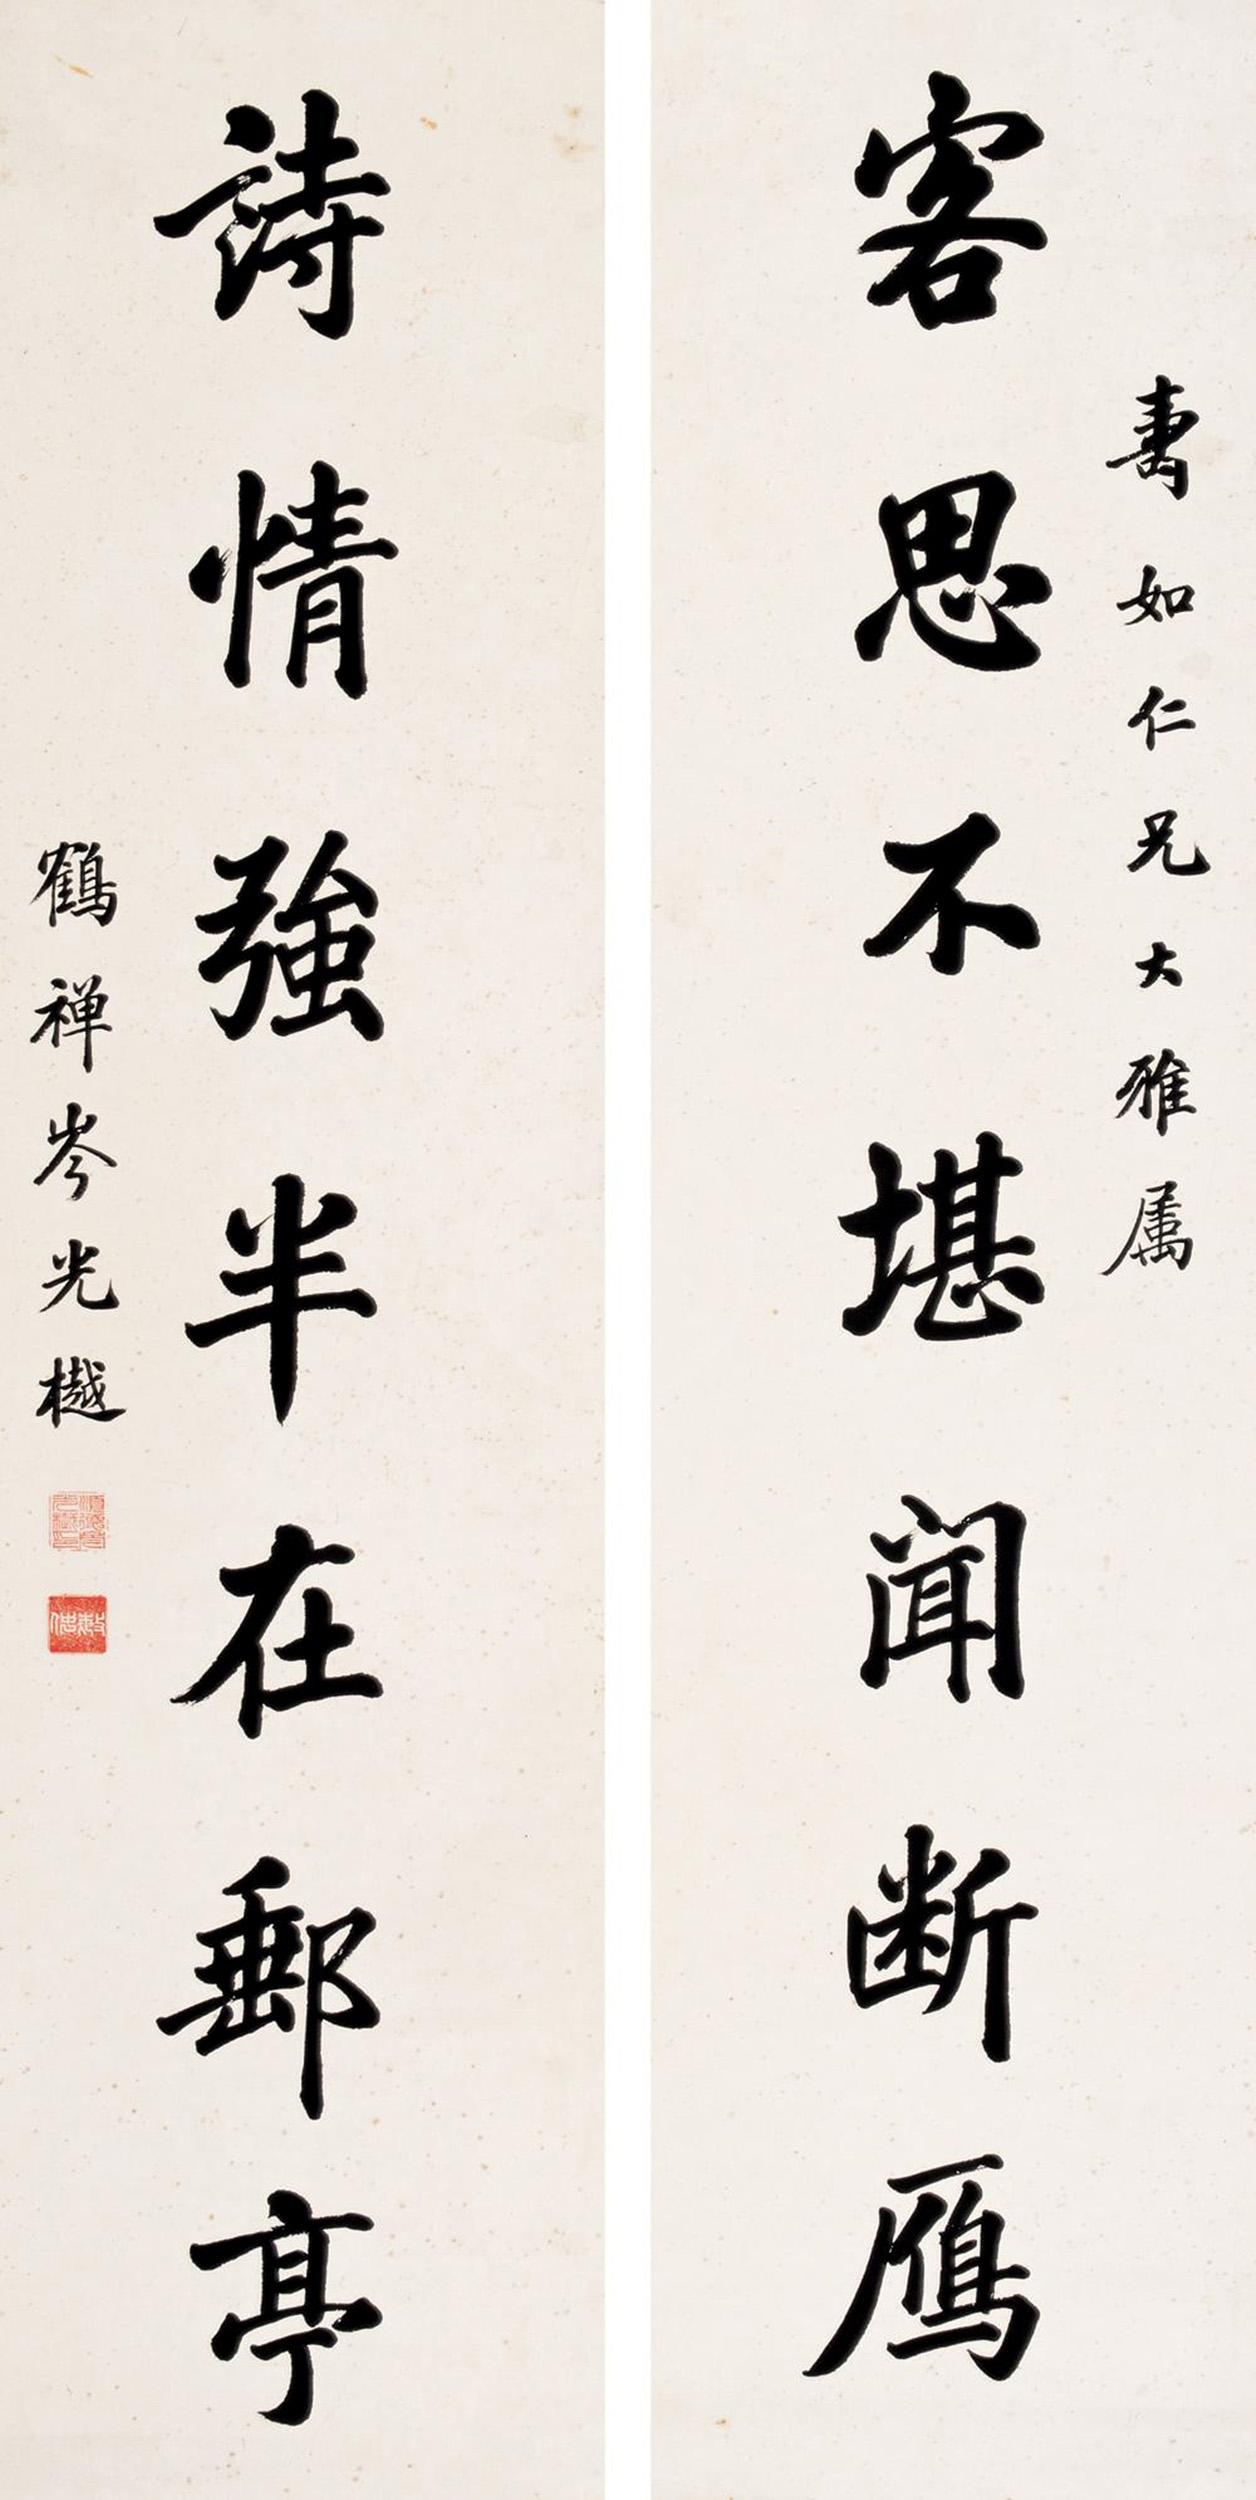 壽如仁兄大雅属
客思不堪聞断鴈
詩情強半在郵亭
鶴禅岑光樾